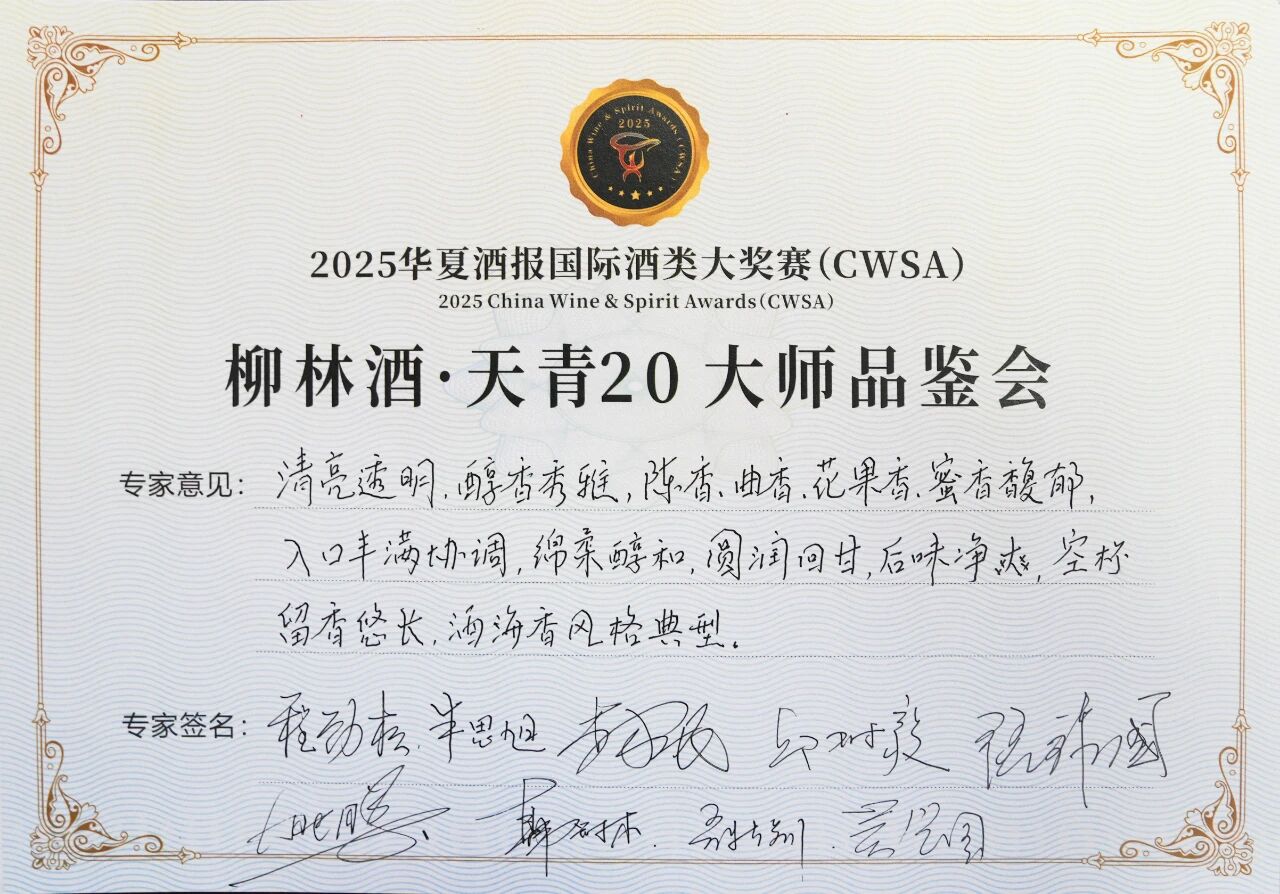 China Wine & Spirit Awards (CWSA)
2025
2025华夏酒报国际酒类大奖赛(CWSA)
2025 China Wine & Spirit Awards(CWSA)
柳林酒·天青20 大师品鉴会
专家意见: 清亮透明、醇香秀雅,陈香、曲香、花果香、蜜香馥郁,
入口丰满协调,绵柔醇和,圆润回甘,后味净爽,空杯
留香悠长,酒海香风格典型。
专家签名: